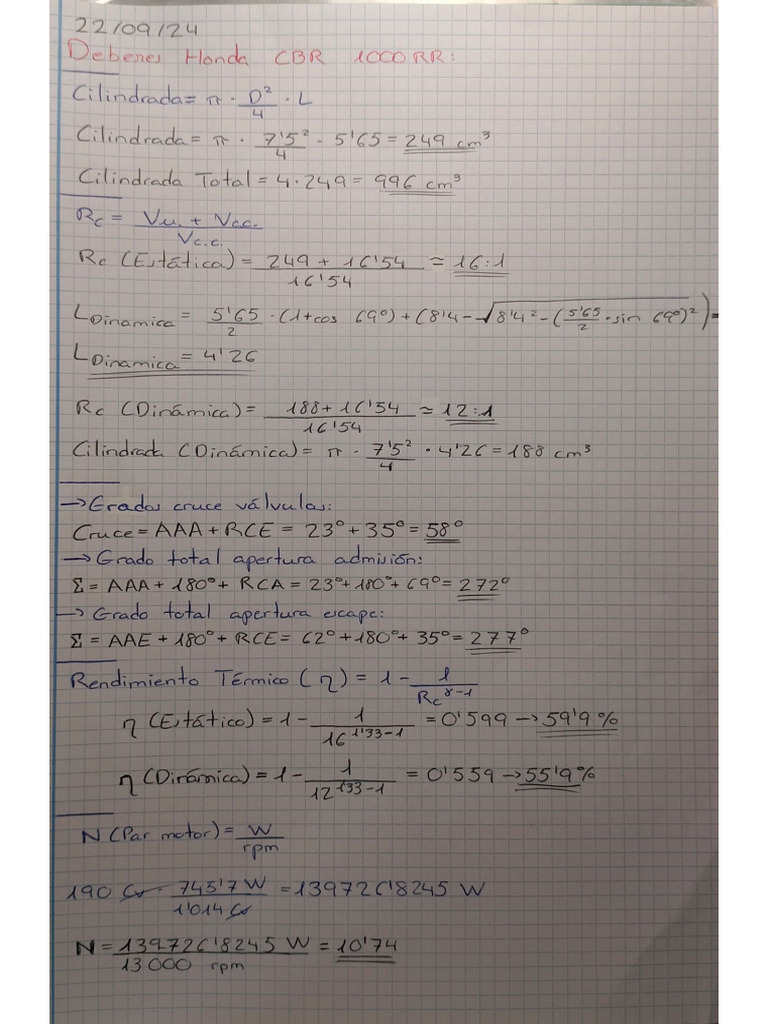 22/09/24
Deberes Honda CBR 1000RR:
Cilindrada = π · D²/4 · L
Cilindrada = π · 7'5²/4 · 5'65 = 249 cm³
Cilindrada Total = 4·249 = 996 cm³
Rc = Vu. + Vc.c./Vc.c.
Rc (Estática) = 249 + 16'54/16'54 ≈ 16:1
LDinamica = 5'65/2 · (1+cos 69º) + (8'4 - √8'4² - (5'65/2 · sin 69º)²) =
LDinamica = 4'26
Rc (Dinámica) = 188 + 16'54/16'54 ≈ 12:1
Cilindrada (Dinámica) = π · 7'5²/4 · 4'26 = 188 cm³
→ Grados cruce válvulas:
Cruce = AAA + RCE = 23º + 35º = 58º
→ Grado total apertura admisión:
Σ = AAA + 180º + RCA = 23º + 180º + 69º = 272º
→ Grado total apertura escape:
Σ = AAE + 180º + RCE = 62º + 180º + 35º = 277º
Rendimiento Térmico (η) = 1 - 1/Rc^γ-1
η (Estático) = 1 - 1/16^1'33-1 = 0'599 → 59'9%
η (Dinámica) = 1 - 1/12^1'33-1 = 0'559 → 55'9%
N (Par motor) = W/rpm
190 Cv · 745'7 W/1'014 Cv = 139726'8245 W
N = 139726'8245 W/13000 rpm = 10'74